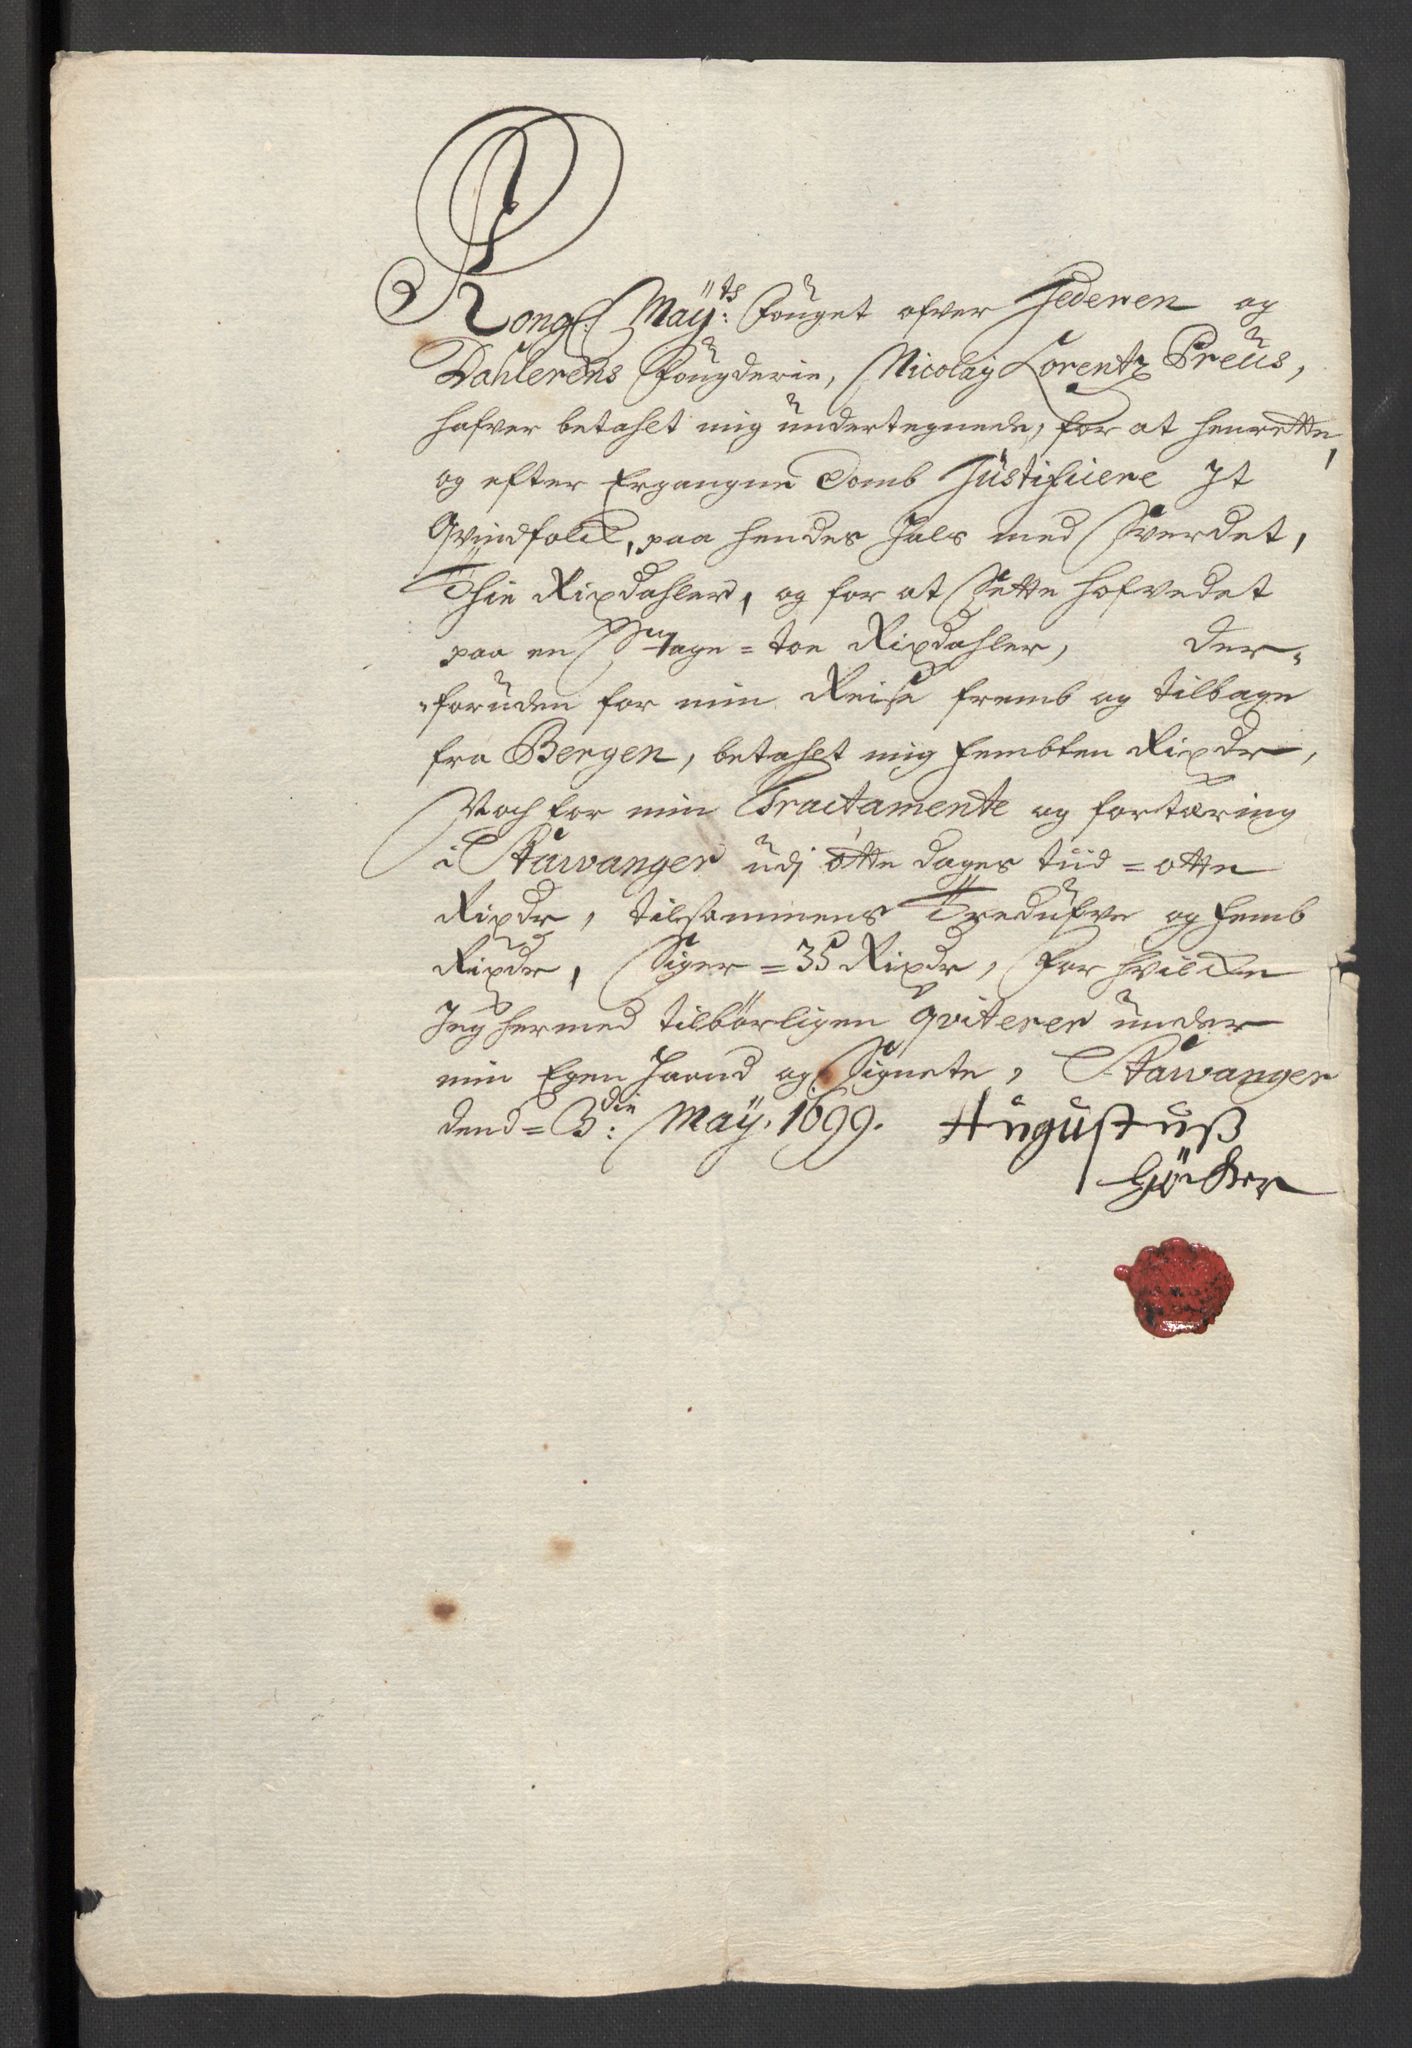 Kongl: Maÿ:ts Fouget ofver Jederen og
Dahlerens Fougderie, Nicolaÿ Lorentz Preüs,
hafver betahlt mig undertegnede, for at henrette,
og efter Ergangne Domb Justificere It
Qvindfolck, paa hendes Hals med Sverdet,
Thie Rixdahler, og for at Sette hofvedet
paa en Stage = toe Rixdahler, der-
foruden for min Reise fremb og tilbage
fra Bergen, betahlt mig fembten Rixdr,
Noch for min Tractamente og fortæring
i Stawanger udj otte dages tiid = otte
Rixdr, tilsammens Tredufve og femb
Rixdr, Siger = 35 Rixdr, For hvilcke
Jeg hermed tilbörligen Qviterer under
min Egen Haand og Signete, Stawanger
dend = 3:die Maÿ, 1699. Augustuß
Göcker